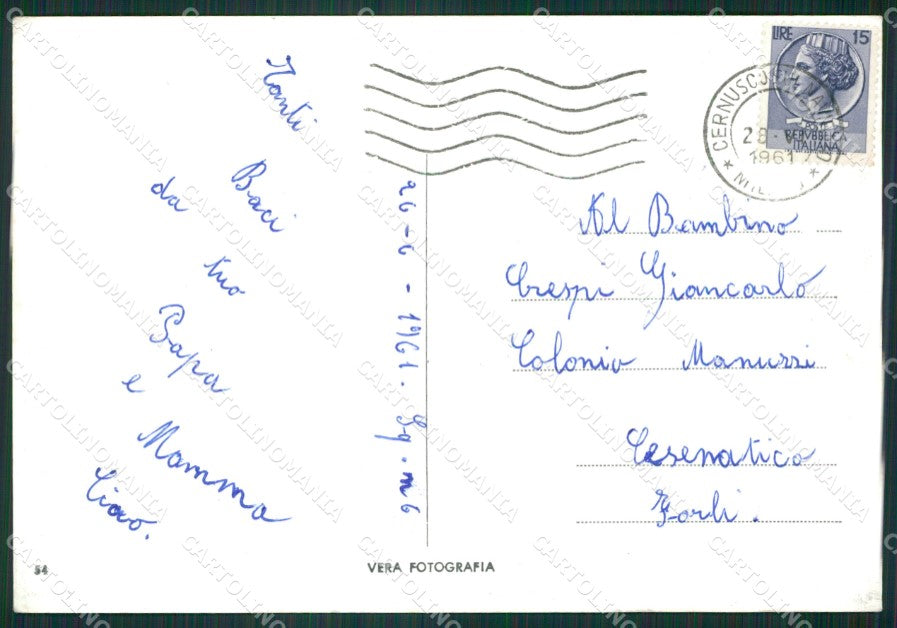 Tanti
Baci
da tuo
Papa
e Mamma
Ciao.
26-6-1961. Sq. n 6
LIRE 15
REPVBBLICA
ITALIANA
1961
Al Bambino
Crespi Giancarlo
Colonia Manuzzi
Cesenatico
Forli.
54
VERA FOTOGRAFIA
CARTOLINOMANIA